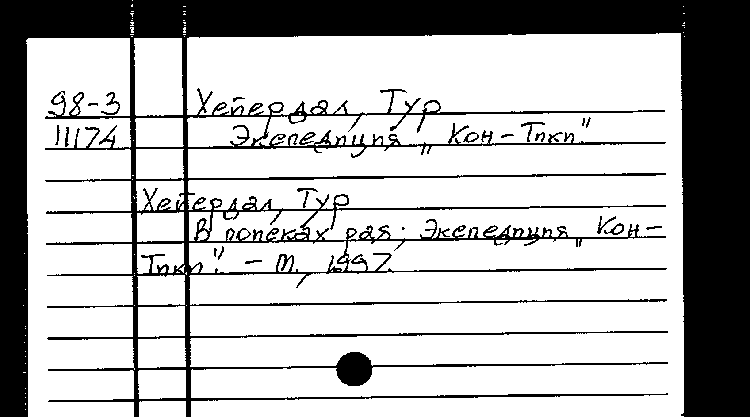 98-3 Хейердал, Тур
11174 Экспедиция „Кон-Тики"
Хейердал, Тур
В поисках рая; Экспедиция „Кон-
Тики". - М., 1997.